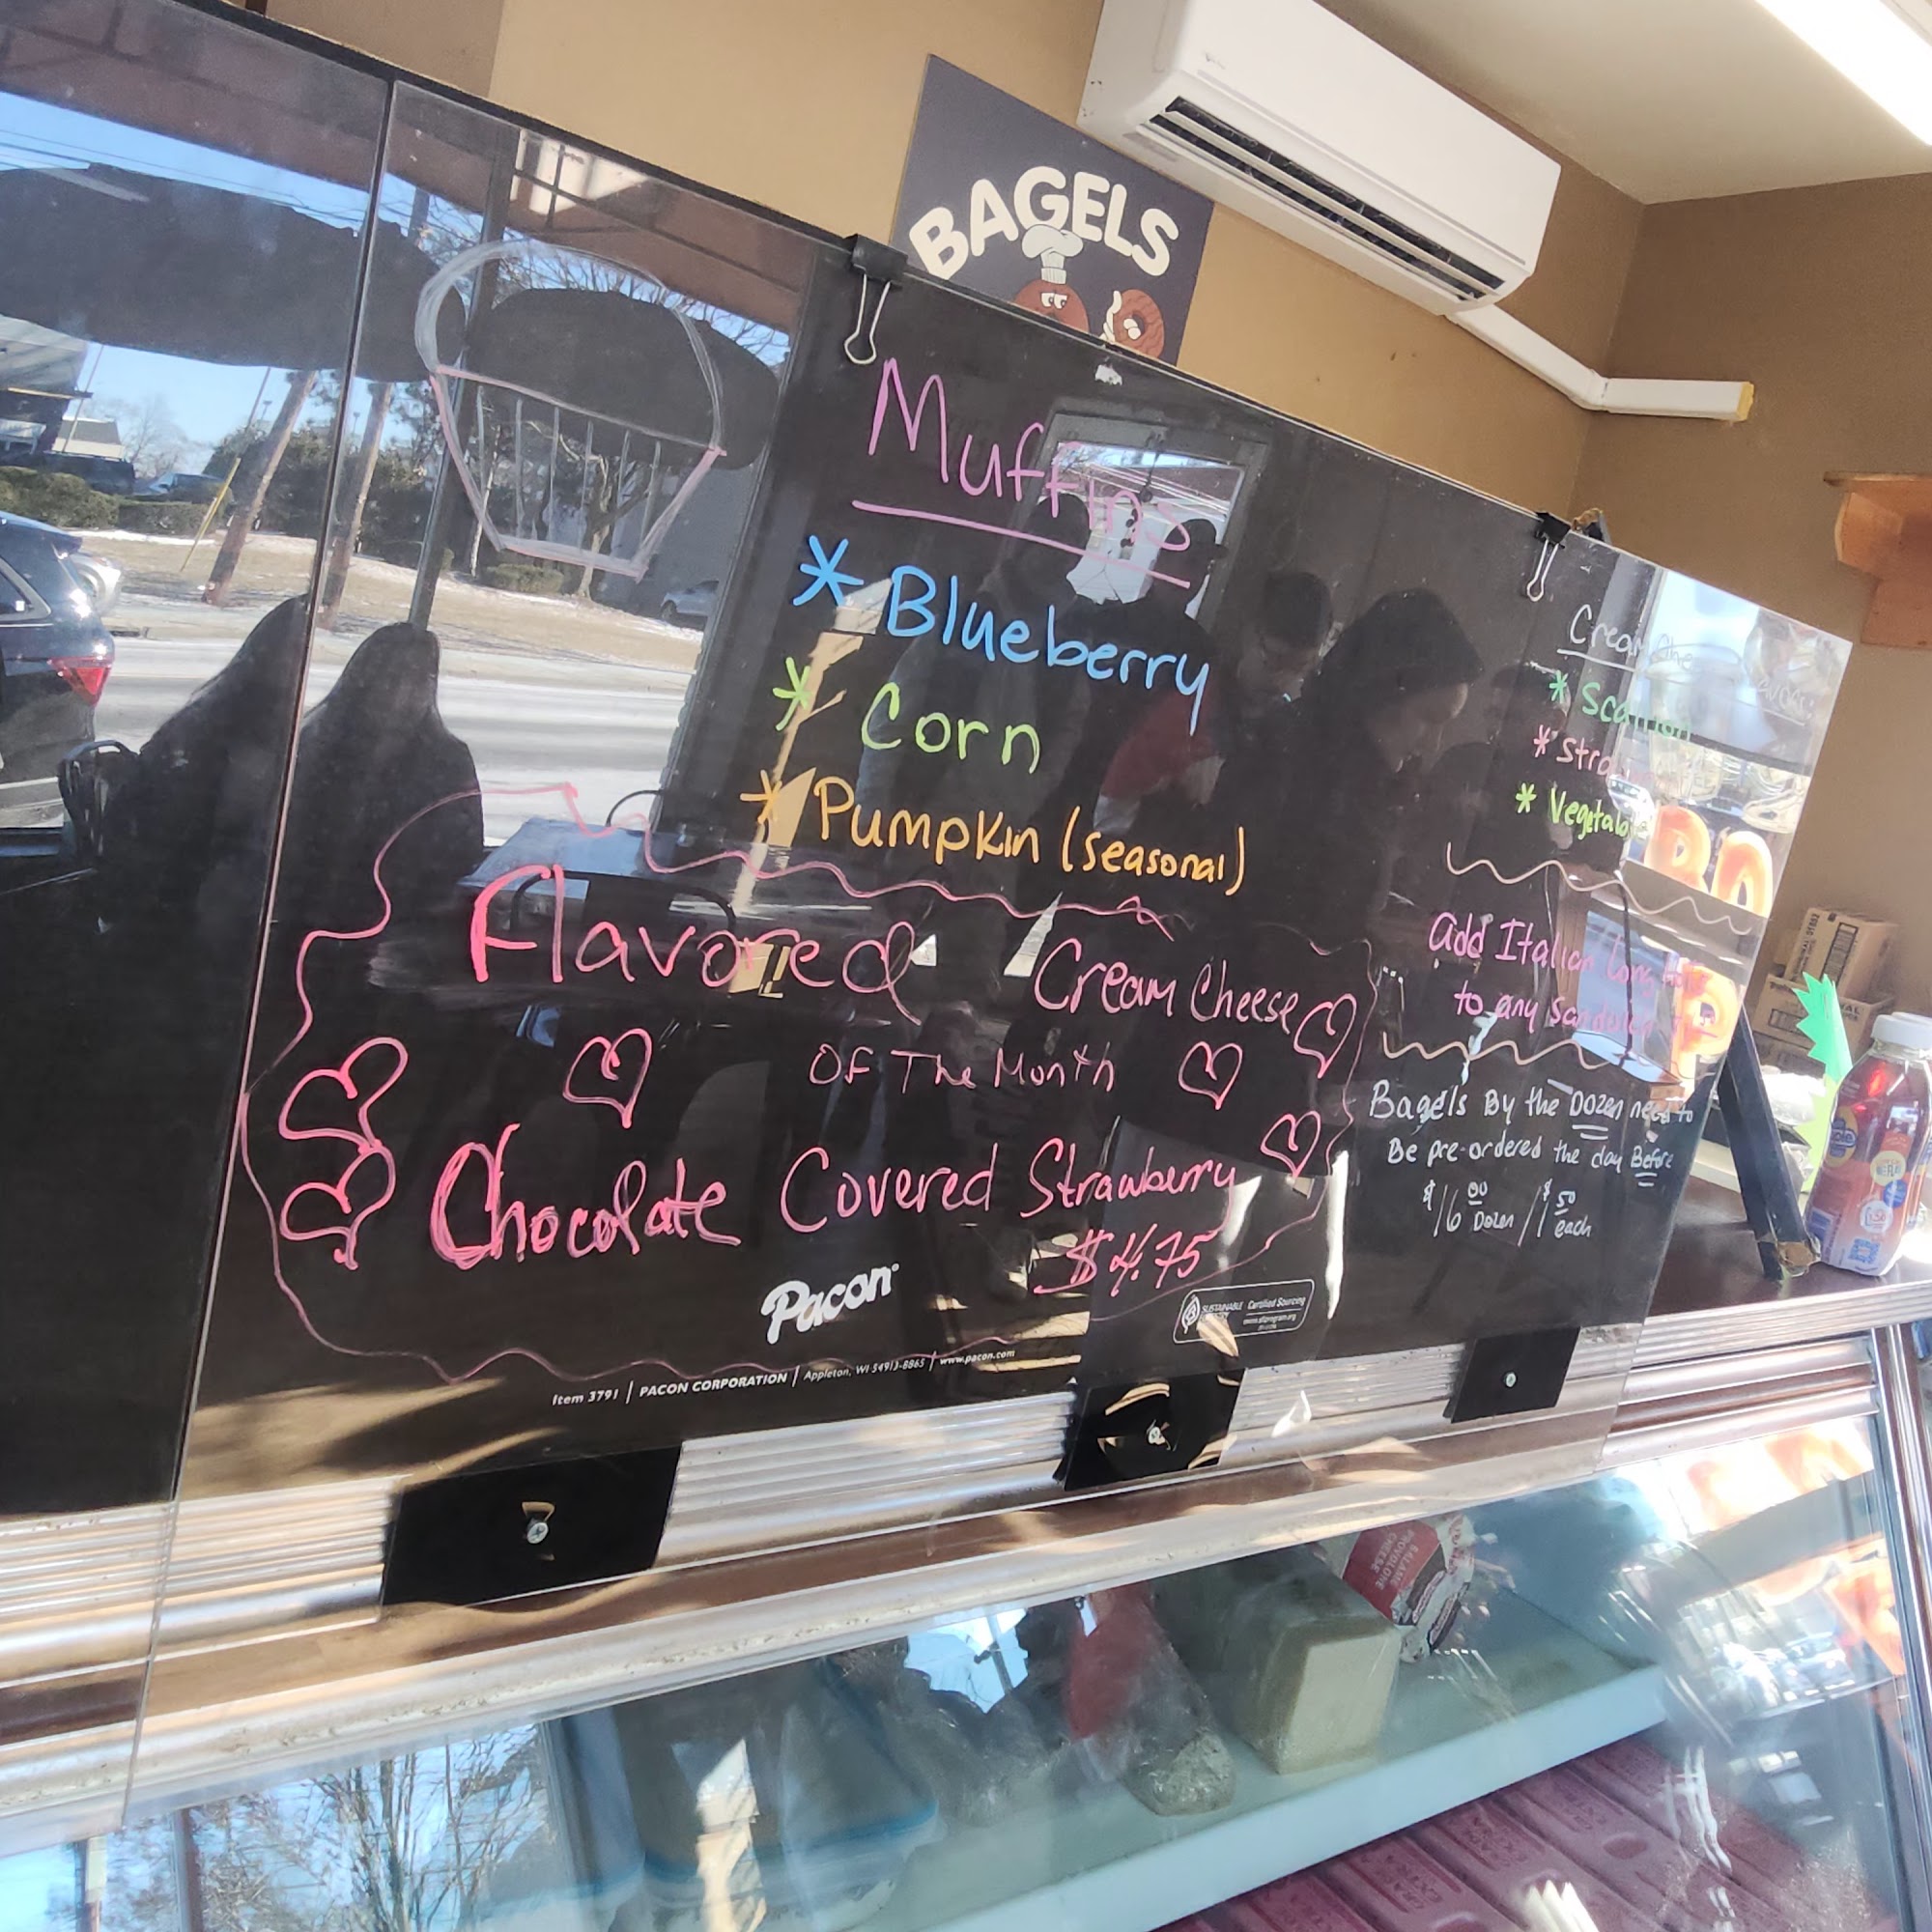 BAGELS
Muffins
* Blueberry
* Corn
* Pumpkin (seasonal)
Flavored Cream Cheese
OF The Month
Chocolate Covered Strawberry
$4.75
Pacon
Item 3791 | PACON CORPORATION | Appleton, WI 54913-8865 | www.pacon.com
SUSTAINABLE
Certified Sourcing
Cream
* Scallion
*
*
add Italian Long
to any
Bagels By the Dozen need to
Be pre-ordered the day Before
$16.00 Dozen / $1.50 each
SALAME
PROVOLONE
CHEESE